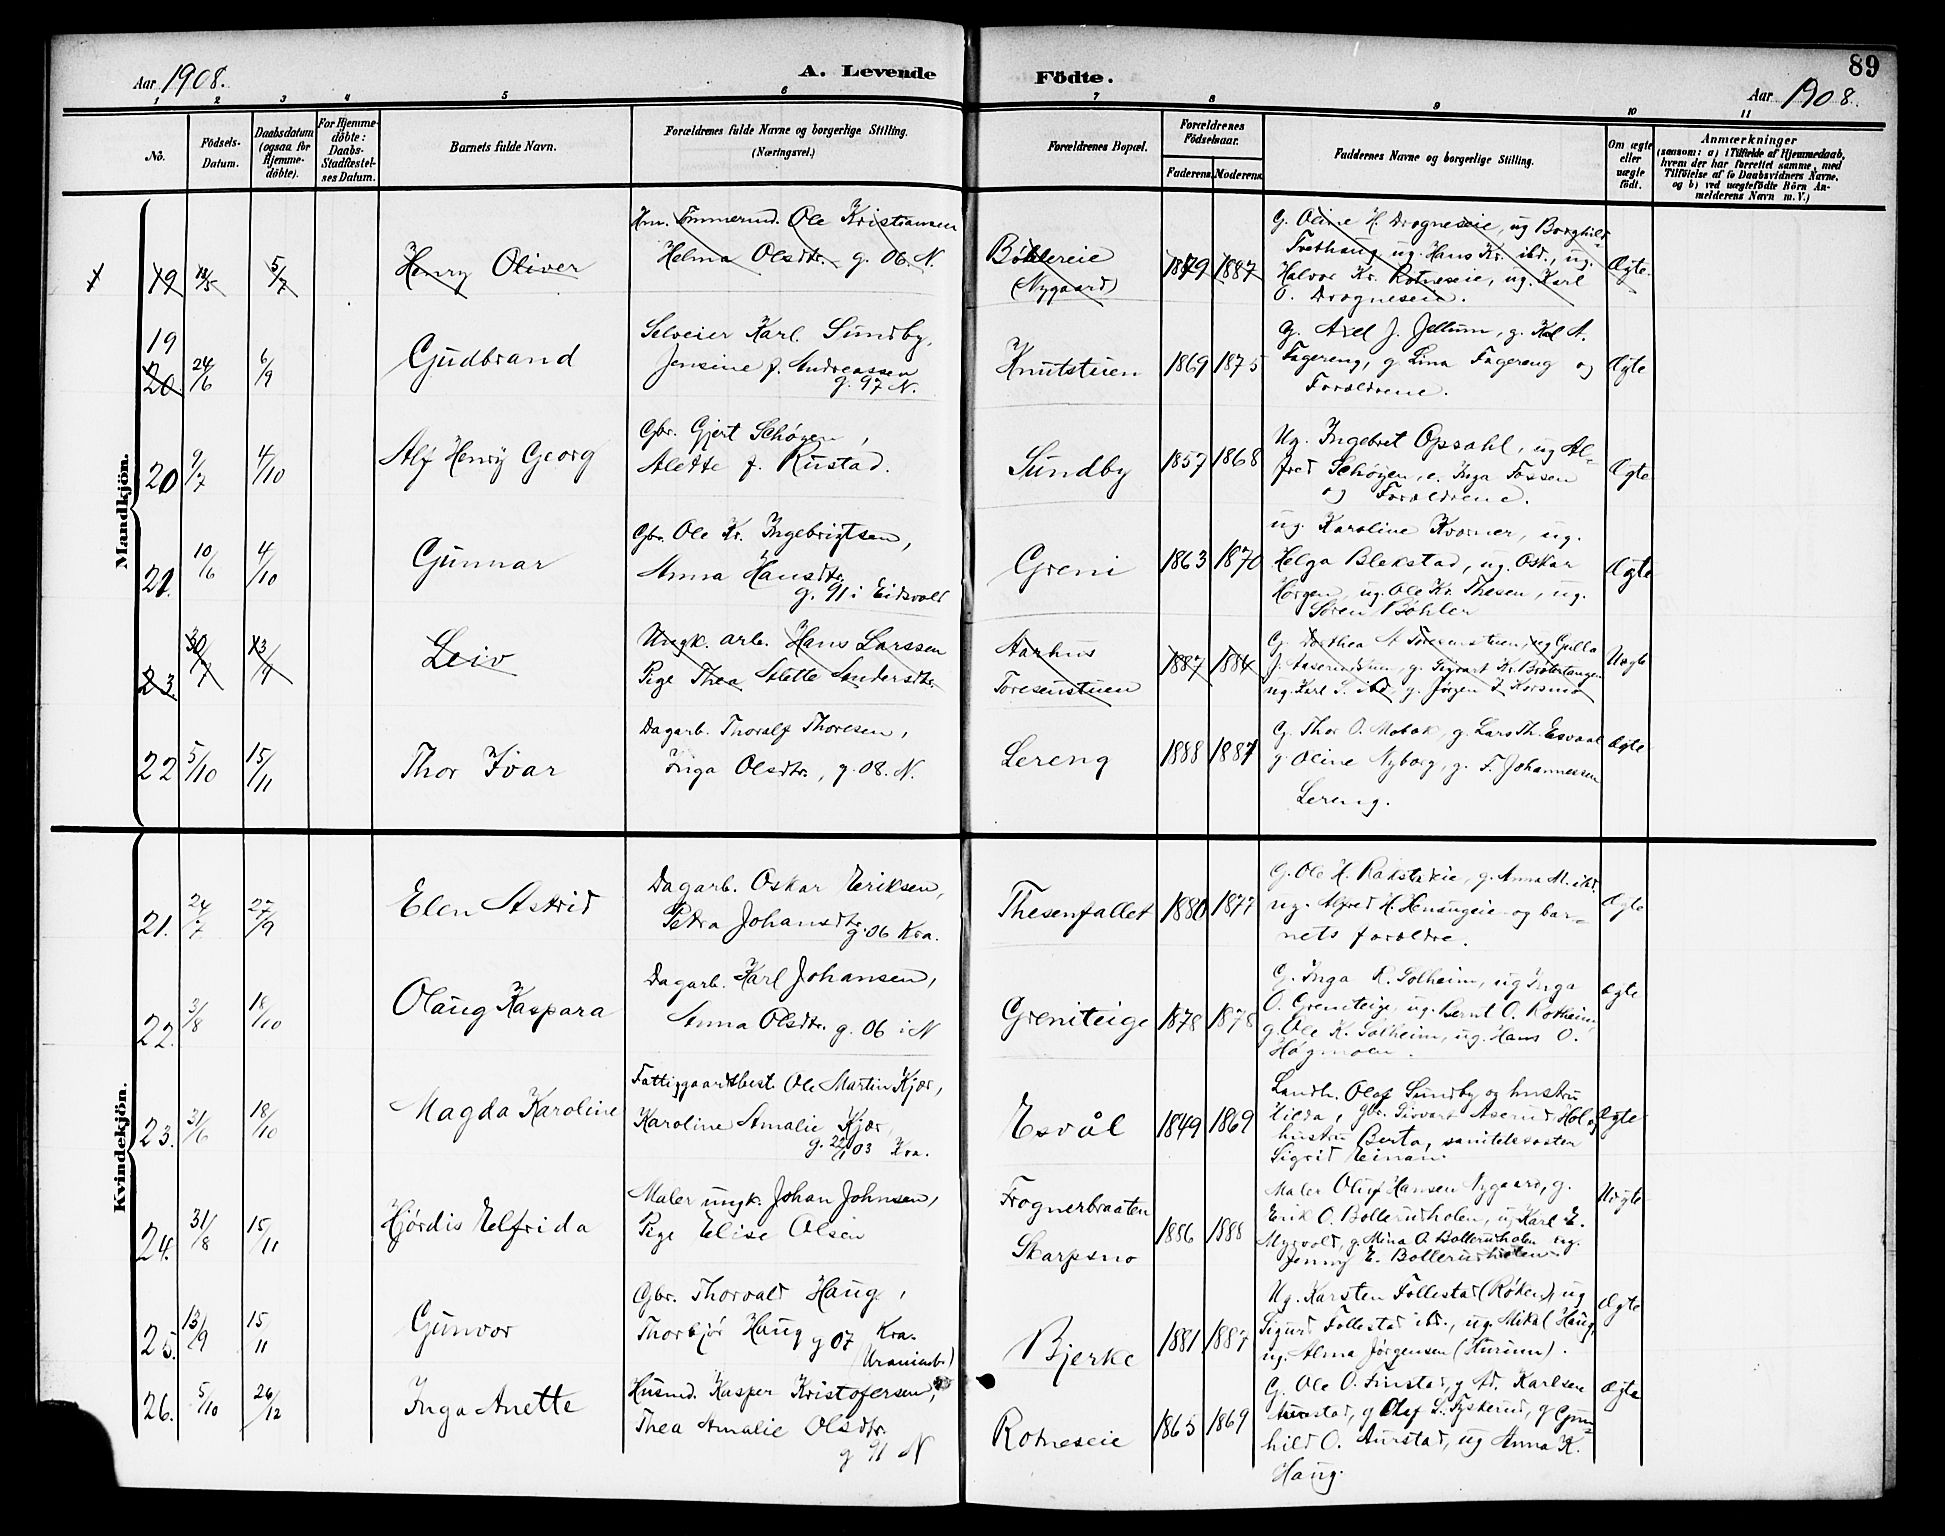 89
Aar 1908.
A. Levende Födte.
Aar 1908.
1 2 3 4 5 6 7 8 9 10 11
No.
Födsels-
Datum.
Daabsdatum
(ogsaa for
Hjemme-
döbte).
For Hjemme-
döbte:
Daabs-
Stadfæstel-
ses Datum.
Barnets fulde Navn.
Forældrenes fulde Navne og borgerlige Stilling.
(Næringsvei.)
Forældrenes Bopæl.
Forældrenes
Födselsaar.
Faderens. Moderens.
Faddernes Navne og borgerlige Stilling.
Om ægte
eller
uægte
födt.
Anmærkninger
(saasom: a) i Tilfælde af Hjemmedaab,
hvem der har forrettet samme, med
Tilföielse af to Daabsvidners Navne,
og b) ved uægtefödte Börn An-
melderens Navn m. V.)
Mandkjön.
19 5/7
Henry Oliver
Ole Kristiansen
Helma Olsdtr. g. 06. N.
Böhlereie
(Nygaard)
1879 1887
G. Oline H. Drogneseie, ug Borghild
Trethaug ug. Hans Kr. ibd., ug.
Halvor Kr. Rotneseie, ug. Karl
O. Drogneseie.
Ægte.
19
20. 24/6 6/9
Gudbrand
Selveier Karl Sundby,
Jensine f. Andreassen
g. 97 N.
Knutstuen
1869 1875
G. Axel J. Jellum, g. Karl A.
Fagereng, g. Lina Fagereng og
Forældrene.
Ægte
20 9/7 4/10
Alf Henry Georg
Gbr. Gjert Schøyen,
Alette f. Rustad.
Sundby
1857 1868
Ug. Ingebret Opsahl, ug Al-
fred Schøyen, e. Inga Fossen
og Forældrene.
Ægte
21. 10/6 4/10
Gunnar
Gbr. Ole Kr. Ingebrigtsen,
Anna Hansdtr.
g. 91 i Eidsvold
Greni
1863 1870
ug. Karoline Kværner, ug.
Helga Blekstad, ug. Oskar
Horgen, ug. Ole Kr. Thesen, ug.
Søren Bøhler
Ægte
23. 30/7
Leiv
Ungk. arb. Hans Larssen
Pige Thea Alette Andersdtr.
Aarhus
Toresenstuen
1887 1884
ug. Karl S. ibd, g. Jørgen J. Korsmo
Uægte
22 5/10 15/11
Thor Ivar
Dagarb. Thoralf Thoresen,
Inga Olsdtr., g. 08. N.
Lereng
1888 1887
G. Thor O. Mobæk, g. Lars Th. Esvaal
g Oline Nyborg, g. F. Johannessen
Lereng.
Ægte
Kvindekjön.
21. 24/7 27/9
Elen Astrid
Dagarb. Oskar Eriksen,
Petra Johansdtr.
g. 06 Kra.
Thesenfallet
1880 1877
G. Ole H. Rakstadeie, g. Anna M. ibd
ug. Alfred H. Haugeie og bar-
nets forældre.
Ægte
22. 3/8 18/10
Olaug Kaspara
Dagarb. Karl Johansen,
Anna Olsdtr. g. 06 i N
Greniteige
1878 1878
G. Inga K. Solheim, ug Inga
O. Greniteige, ug. Bernt O. Rotheim,
g. Ole K. Solheim, ug. Hans O.
Høgmoen.
Ægte
23. 31/6 18/10
Magda Karoline
Fattiggaardsbest. Ole Martin Kjær,
Karoline Amalie Kjær,
g. 22/1 03 Kra.
Esvål
1849 1869
Landh. Olaf Sundby og hustru
Hilda, gbr. Sigvart Aserud Hol og
hustru Berta, sanitetssøster
Sigrid Einan.
Ægte
24. 31/8 15/11
Hjördis Elfrida
Maler ungk. Johan Johnsen,
Pige Elise Olsen
Frognerbraaten
Skarpsno
1886 1888
Maler Oluf Hansen Nygaard, g.
Erik O. Bollerudholen, ug Karl E.
Myrvold, g. Mina O Bollerudholen ug.
Jenny E. Bollerudholen
Uægte
25. 13/9 15/11
Gunvor
Gbr. Thorvald Haug,
Thorbjør Haug g 07 Kra.
(Uranienb.)
Bjerke
1881 1887
Ug. Karsten Follestad (Røken), ug
Sigurd Follestad ibd., ug. Mikal Haug,
ug. Alma Jørgensen (Hurum).
Ægte
26. 5/10 26/12
Inga Anette
Husmd. Kasper Kristofersen,
Thea Amalie Olsdtr.
g 91 N
Rotneseie
1865 1869
G. Ole O. Finstad, g Ad. Karlsen
Aurstad, g Olaf L. Fjskerud, g Gun-
hild O. Aurstad, ug Anna K.
Haug.
Ægte